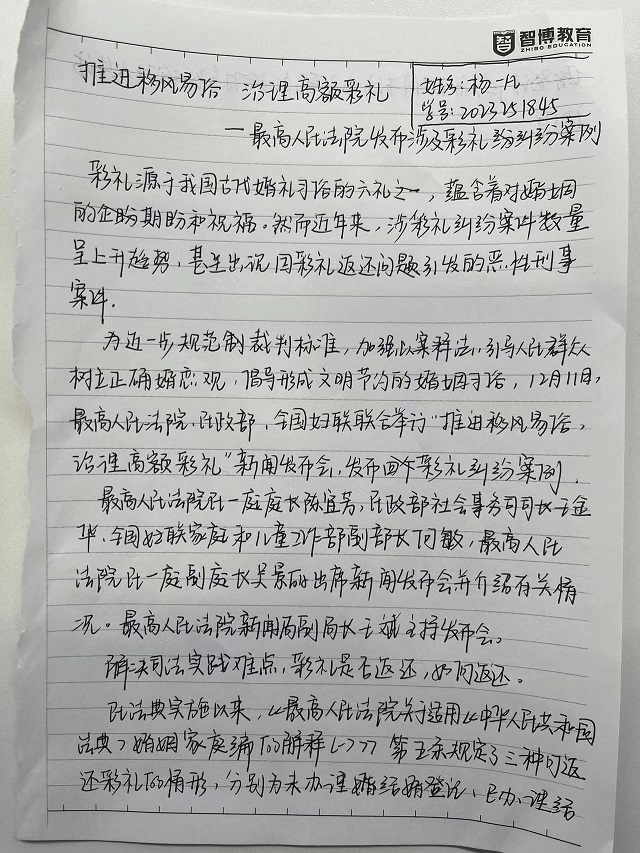 智博教育
ZHIBO EDUCATION
推进移风易俗 治理高额彩礼
姓名:杨一凡
学号:2023251845
—最高人民法院发布涉及彩礼纠纠纷案例
彩礼源于我国古代婚礼习俗的六礼之一,蕴含着对婚姻
的企盼期盼和祝福。然而近年来,涉彩礼纠纷案件数量
呈上升趋势,甚至出现因彩礼返还问题引发的恶性刑事
案件.
为进一步规范制裁判标准,加强以案释法,引导人民群众
树立正确婚恋观,倡导形成文明节约的婚姻习俗,12月11日,
最高人民法院、民政部、全国妇联联合举行“推进移风易俗,
治理高额彩礼”新闻发布会,发布四个彩礼纠纷案例.
最高人民法院民一庭庭长陈宜芳,民政部社会事务司司长王金
华,全国妇联家庭和儿童工作部副部长何敏,最高人民
法院民一庭副庭长吴景丽出席新闻发布会并介绍有关情
况。最高人民法院新闻局副局长王斌主持发布会。
解决司法实践难点,彩礼是否返还,如何返还。
民法典实施以来,《最高人民法院关于适用《中华人民共和国
法典》婚姻家庭编的解释(一)》第五条规定了三种可返
还彩礼的情形,分别为未办理婚结婚登记、已办理结